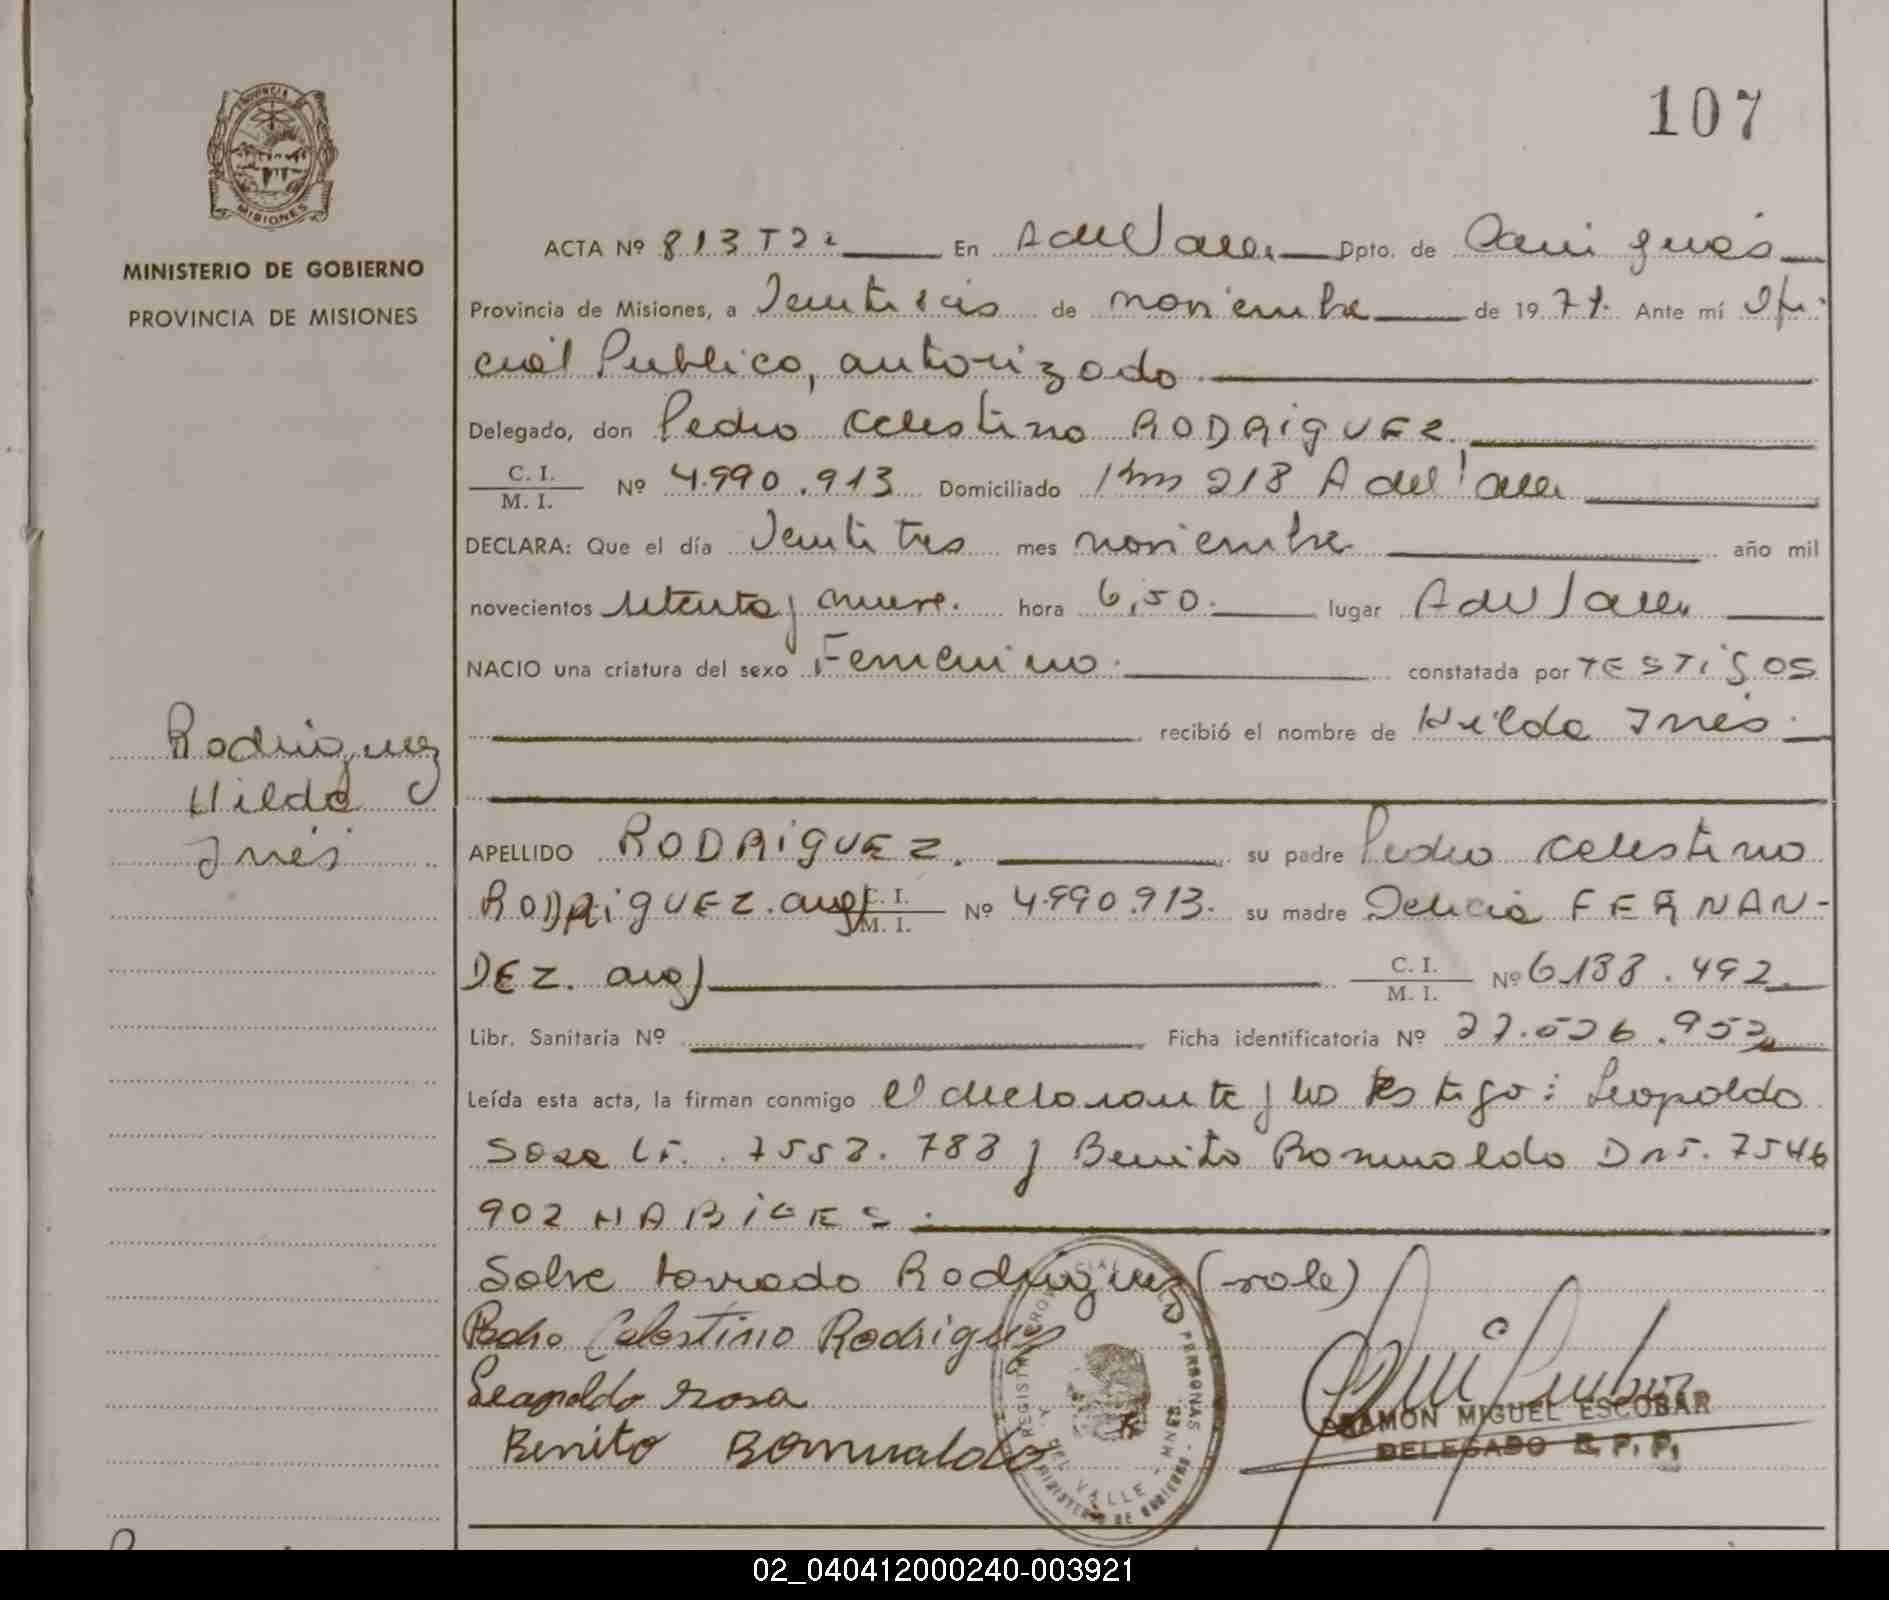 107
PROVINCIA DE
MISIONES
MINISTERIO DE GOBIERNO
PROVINCIA DE MISIONES
ACTA Nº 813 T2: En A del Valle Dpto. de Cainguás
Provincia de Misiones, a Veintiseis de noviembre de 1979. Ante mí Ofi-
cial Publico, autorizado
Delegado, don Pedro Celestino RODRIGUEZ.
C. I. / M. I. Nº 4.990.913 Domiciliado Km 218 A del Valle
DECLARA: Que el día Veintitres mes noviembre año mil
novecientos setenta y nueve. hora 6,50. lugar A del Valle
NACIO una criatura del sexo Femenino. constatada por TESTIGOS
recibió el nombre de Hilda Inés.
Rodriguez
Hilda
Inés
APELLIDO RODRIGUEZ. su padre Pedro Celestino
RODRIGUEZ. arg. C. I. / M. I. Nº 4.990.913. su madre Delicia FERNAN-
DEZ. arg. C. I. / M. I. Nº 6.188.492
Libr. Sanitaria Nº Ficha identificatoria Nº 27.526.952
Leída esta acta, la firman conmigo el declarante y los testigo: Leopoldo
Sosa 7558.788 y Benito Romualdo 7546
902
Sobre borrado Rodriguez (vale)
Pedro Celestino Rodriguez
Leopoldo Sosa
Benito Romualdo
REGISTRO PERSONAS
DEL VALLE - MNES
MINISTERIO DE GOBIERNO
RAMON MIGUEL ESCOBAR
DELEGADO R. P. P.
02_040412000240-003921